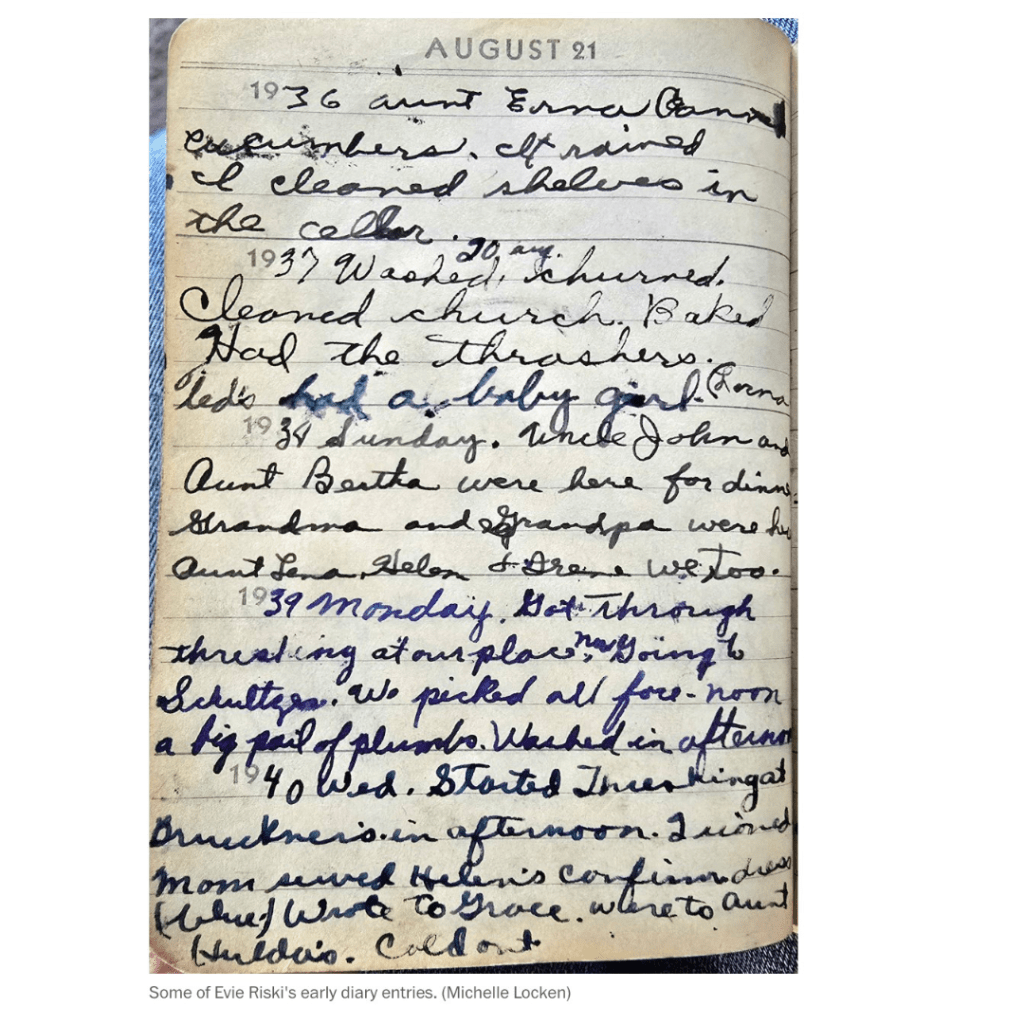 AUGUST 21
1936 aunt Erna Canned
cucumbers. It rained
I cleaned shelves in
the cellar.
20 aug.
1937 Washed, churned.
Cleaned church. Baked
Had the thrashers.
Ted's had a baby girl. (Lorna
1934 Sunday. Uncle John and
Aunt Bertha were here for dinne
Grandma and Grandpa were he
Aunt Lena, Helen & Irene we too.
1939 Monday. Got through
threshing at our place, now going to
Schultzes. We picked all fore-noon
a big pail of plumbs. Washed in afternoon
1940 Wed. Started Threshing at
Bruckner's in afternoon. I ironed
Mom sewed Helen's confirm. dress
(blue) Wrote to Grace. were to Aunt
Hulda's. Cold out
Some of Evie Riski's early diary entries. (Michelle Locken)